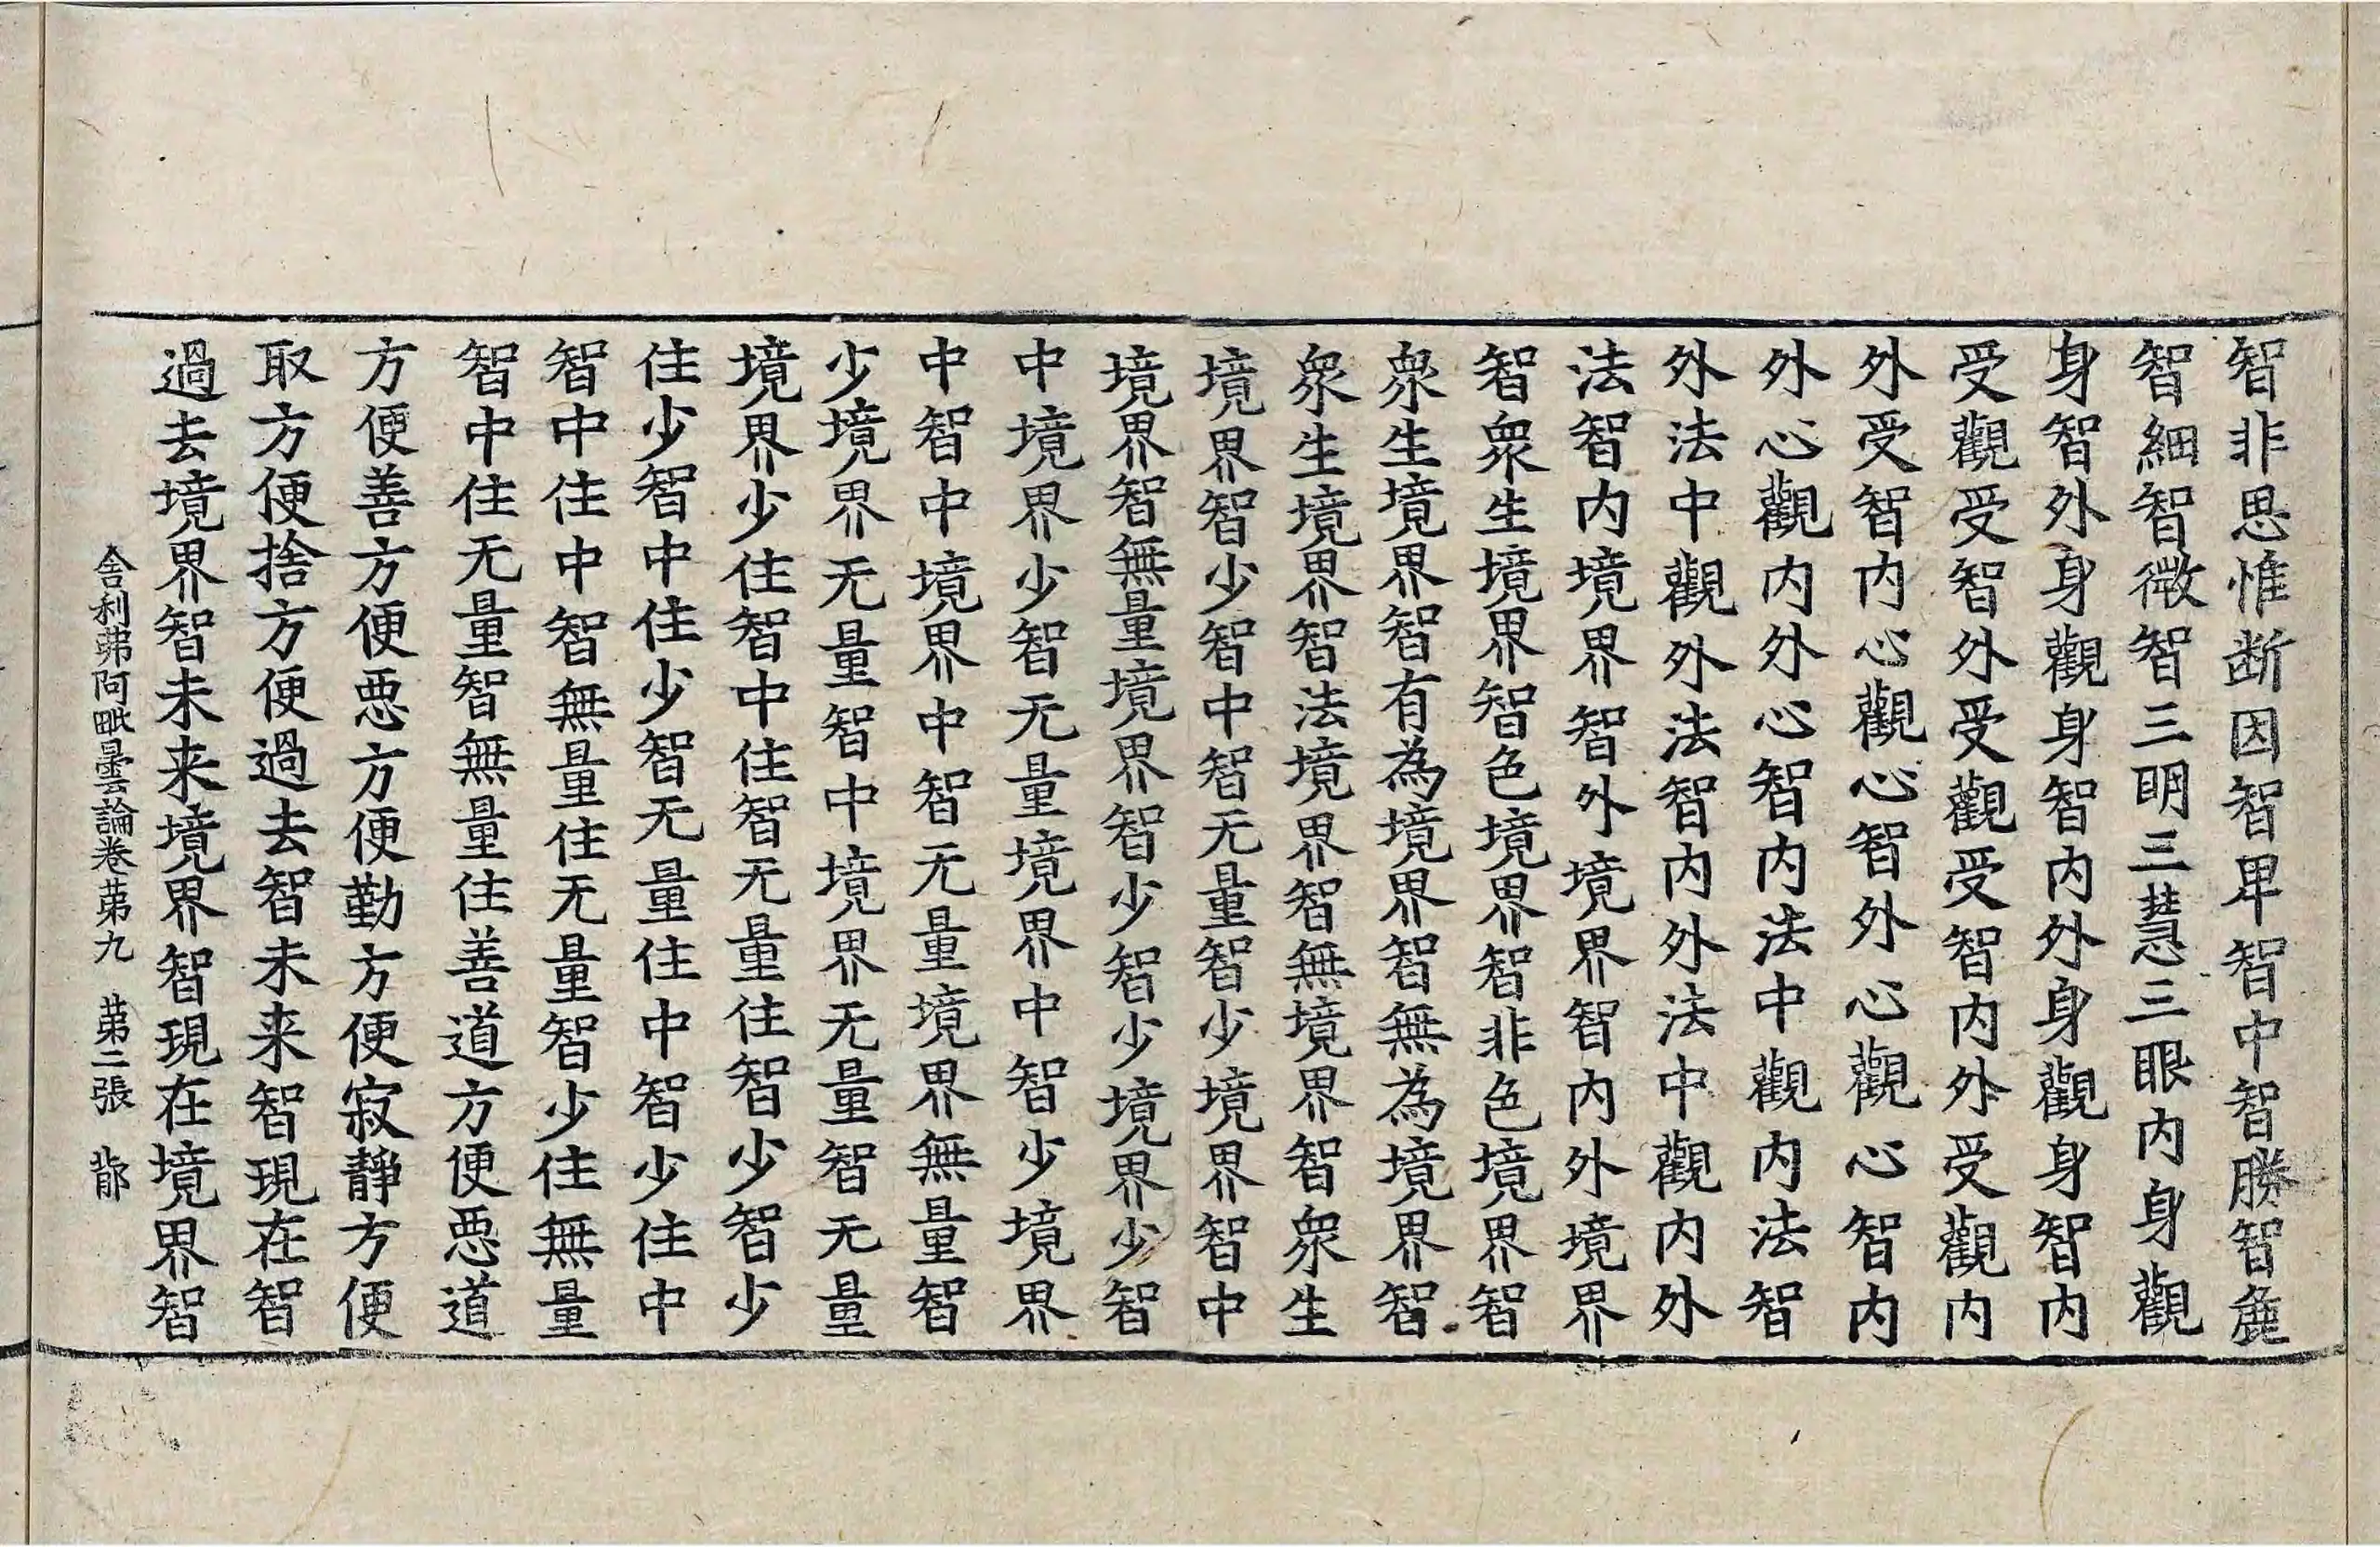 智非思惟断因智卑智中智勝智麁
智細智微智三明三慧三眼内身觀
身智外身觀身智内外身觀身智内
受觀受智外受觀受智内外受觀内
外受智内心觀心智外心觀心智内
外心觀内外心智内法中觀内法智
外法中觀外法智内外法中觀内外
法智内境界智外境界智内外境界
智衆生境界智色境界智非色境界智
衆生境界智有為境界智無為境界智
衆生境界智法境界智無境界智衆生
境界智少智中智无量智少境界智中
境界智無量境界智少智少境界少智
中境界少智无量境界中智少境界
中智中境界中智无量境界無量智
少境界无量智中境界无量智无量
境界少住智中住智无量住智少智少
住少智中住少智无量住中智少住中
智中住中智無量住无量智少住無量
智中住无量智無量住善道方便惡道
方便善方便惡方便勤方便寂靜方便
取方便捨方便過去智未来智現在智
過去境界智未来境界智現在境界智
舍利弗阿毗曇論卷苐九 苐二張